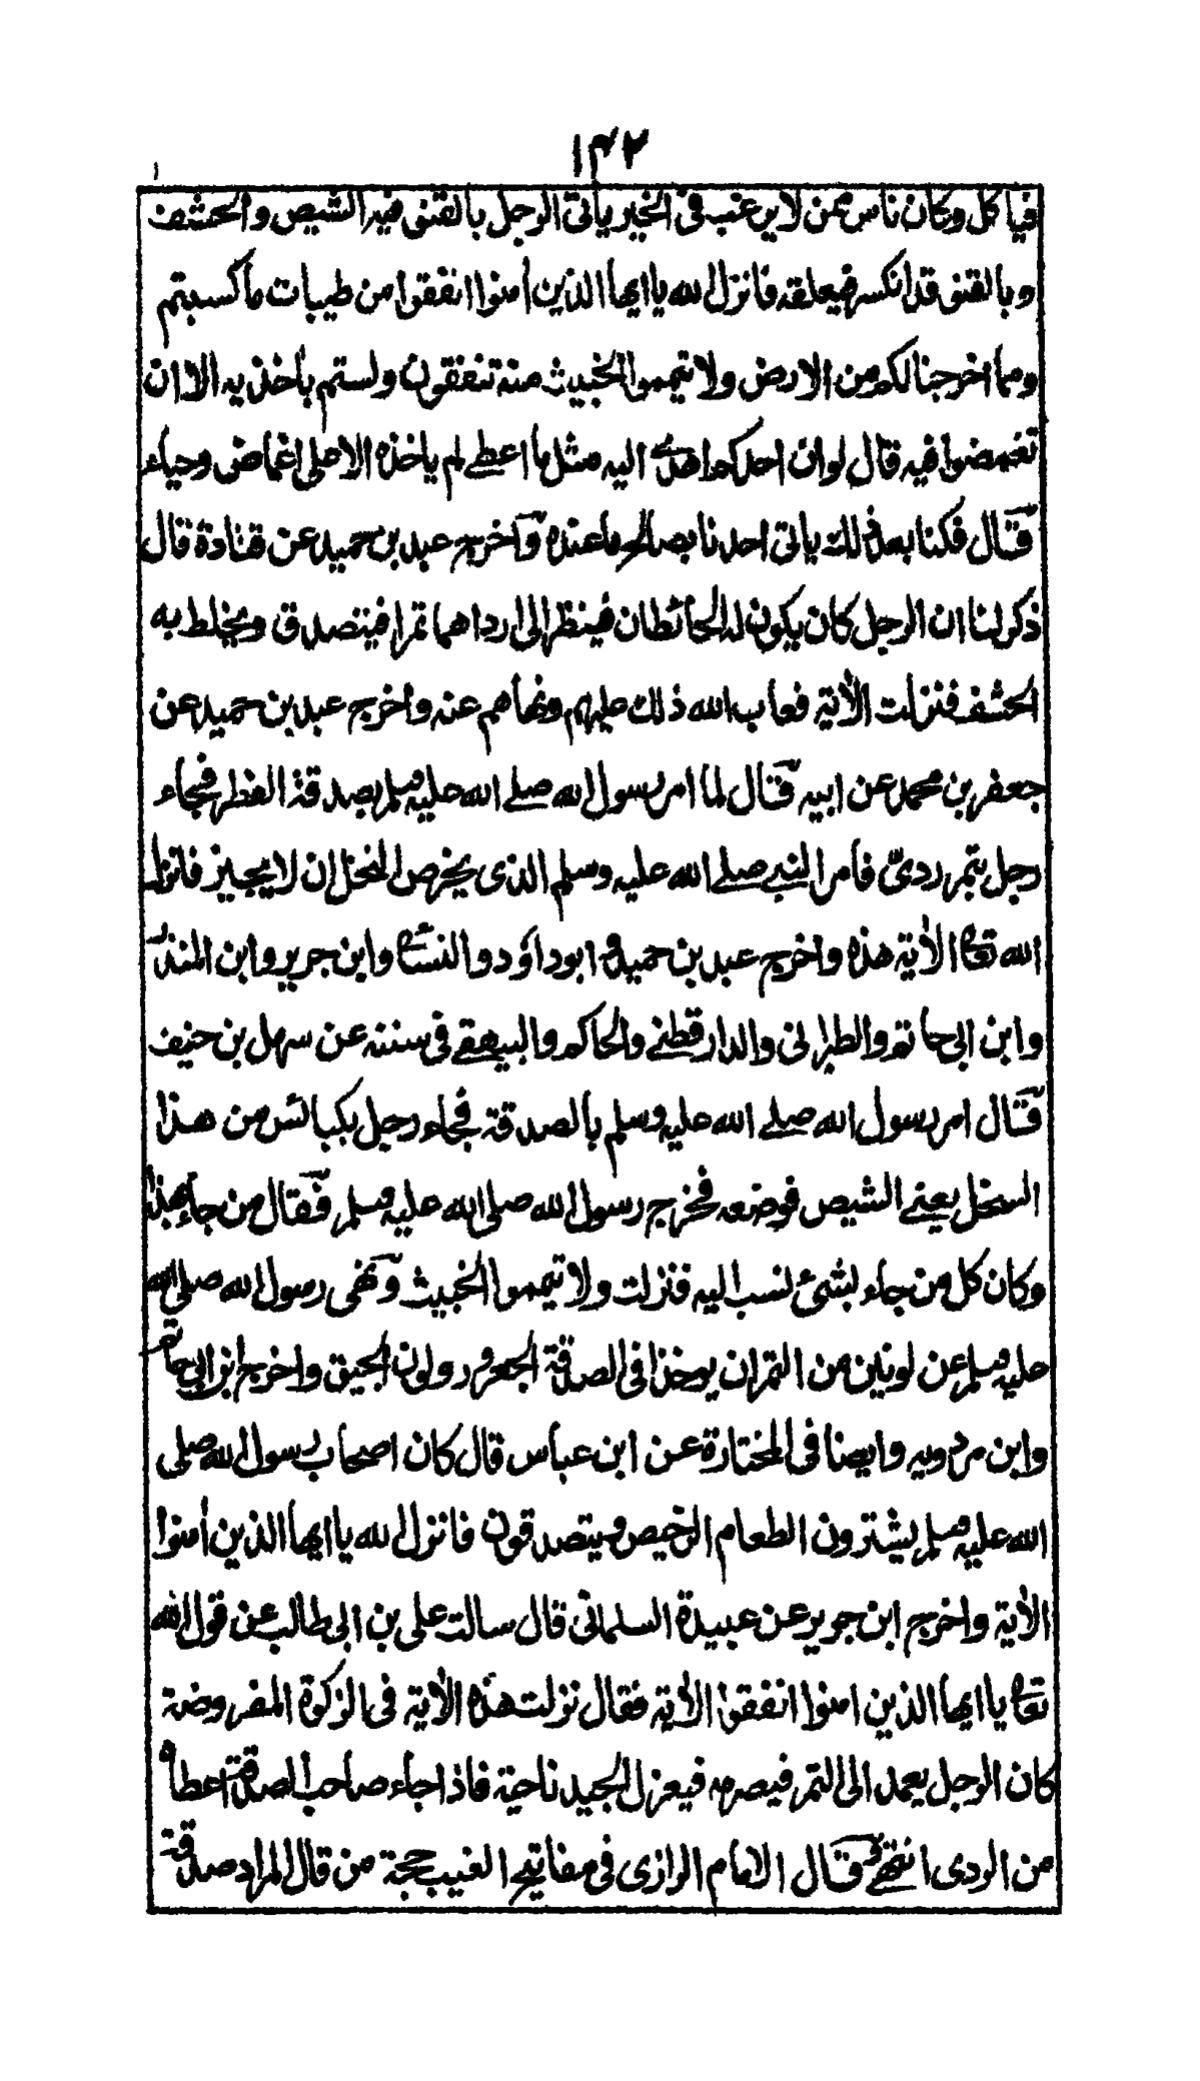 ١٤٢
١
فياكل وكان ناس ممن لايرغب فى الخير ياتى الرجل بالقنو فيه الشيص والحشف
وبالقنو قد انكسر فيعلقه فانزل الله يا ايها الذين أمنوا انفقوا من طيبات ماكسبتم
ومما اخرجنا لكم من الارض ولا تيمموا الخبيث منه تنفقون ولستم بأخذيه الا ان
تغمضوا فيه قال لو ان احدكم اهدى اليه مثل ما اعطے لم ياخذه الا على اغماض وحياء
قال فكنا بعد ذلك ياتى احدنا بصالح ما عنده واخرج عبد بن حميد عن قتادة قال
ذكر لنا ان الرجل كان يكون له الحائطان فينظر الى ارداهما تمرا فيتصدق ويخلط به
الحشف فنزلت الأية فعاب الله ذلك عليهم ونهاهم عنه واخرج عبد بن حميد عن
جعفر بن محمد عن ابيه قال لما امر رسول الله صلے الله عليه وسلم بصدقة الفطر فجاء
رجل بتمر ردىّ فأمر النبے صلے الله عليه وسلم الذى يخرص النخل ان لا يجيز فانزل
الله تعا الأية هذه واخرج عبد بن حميد و ابو داؤد والنسائى وابن جرير وابن المنذر
وابن ابى حاتم والطبرانى والدارقطنے والحاكم والبيهقے فى سننه عن سهل بن حنيف
قال امر رسول الله صلے الله عليه وسلم بالصدقة فجاء رجل بكبائس من هذا
السخل يعنے الشيص فوضعه فخرج رسول الله صلى الله عليه وسلم فقال من جاء بهذا
وكان كل من جاء بشئ نسب اليه فنزلت ولا تيمموا الخبيث ونهى رسول الله صلى الله
عليه وسلم عن لونين من التمر ان يوخذا فى الصدقة الجعرور ولون الحبيق واخرج ابن ابى حاتم
وابن مردويه وايضا فى المختارة عن ابن عباس قال كان اصحاب رسول الله صلى
الله عليه وسلم يشترون الطعام الرخيص ويتصدقون فانزل الله يا ايها الذين أمنوا
الأية واخرج ابن جرير عن عبيدة السلمانى قال سالت على بن ابى طالب عن قول الله
تعا يا ايها الذين امنوا انفقوا الأية فقال نزلت هذه الأية فى الزكوة المفروضة
كان الرجل يعمد الى التمر فيصرمه فيعزل الجيد ناحية فاذا جاء صاحب الصدقة اعطاه
من الردى انتهے وقال الامام الرازى فى مفاتيح الغيب حجة من قال المراد صدقة